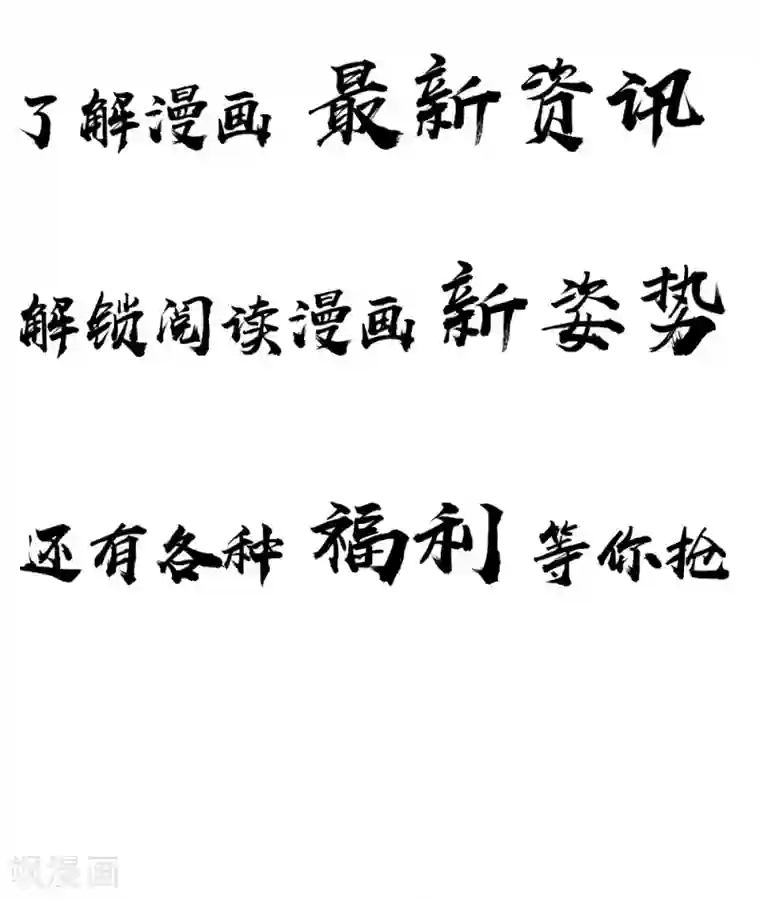 了解漫画 最新资讯
解锁阅读漫画 新姿势
还有各种 福利 等你抢
飒漫画